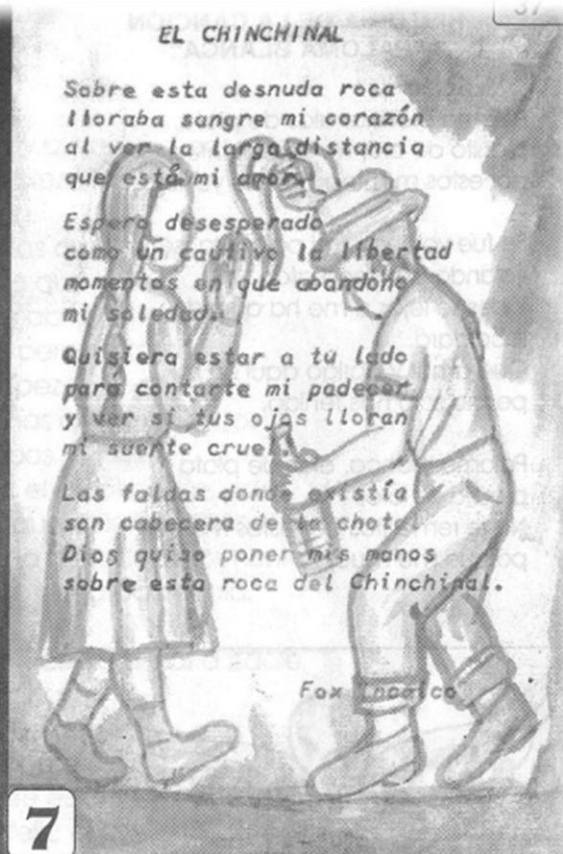 37
EL CHINCHINAL
Sobre esta desnuda roca
lloraba sangre mi corazón
al ver la larga distancia
que está mi amor.
Espero desesperado
como un cautivo la libertad
momentos en que abandone
mi soledad.
Quisiera estar a tu lado
para contarte mi padecer
y ver si tus ojos lloran
mi suerte cruel.
Las faldas donde existía
son cabecera de la chota.
Dios quiso poner mis manos
sobre esta roca del Chinchinal.
Fox Incaico
7